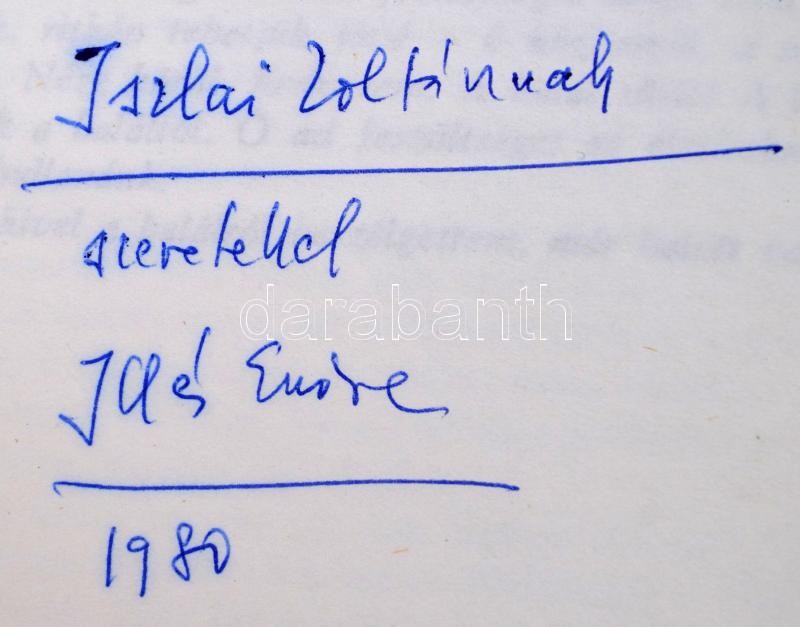 Iszlai Zoltánnak
szeretettel
darabanth
Illés Endre
1980